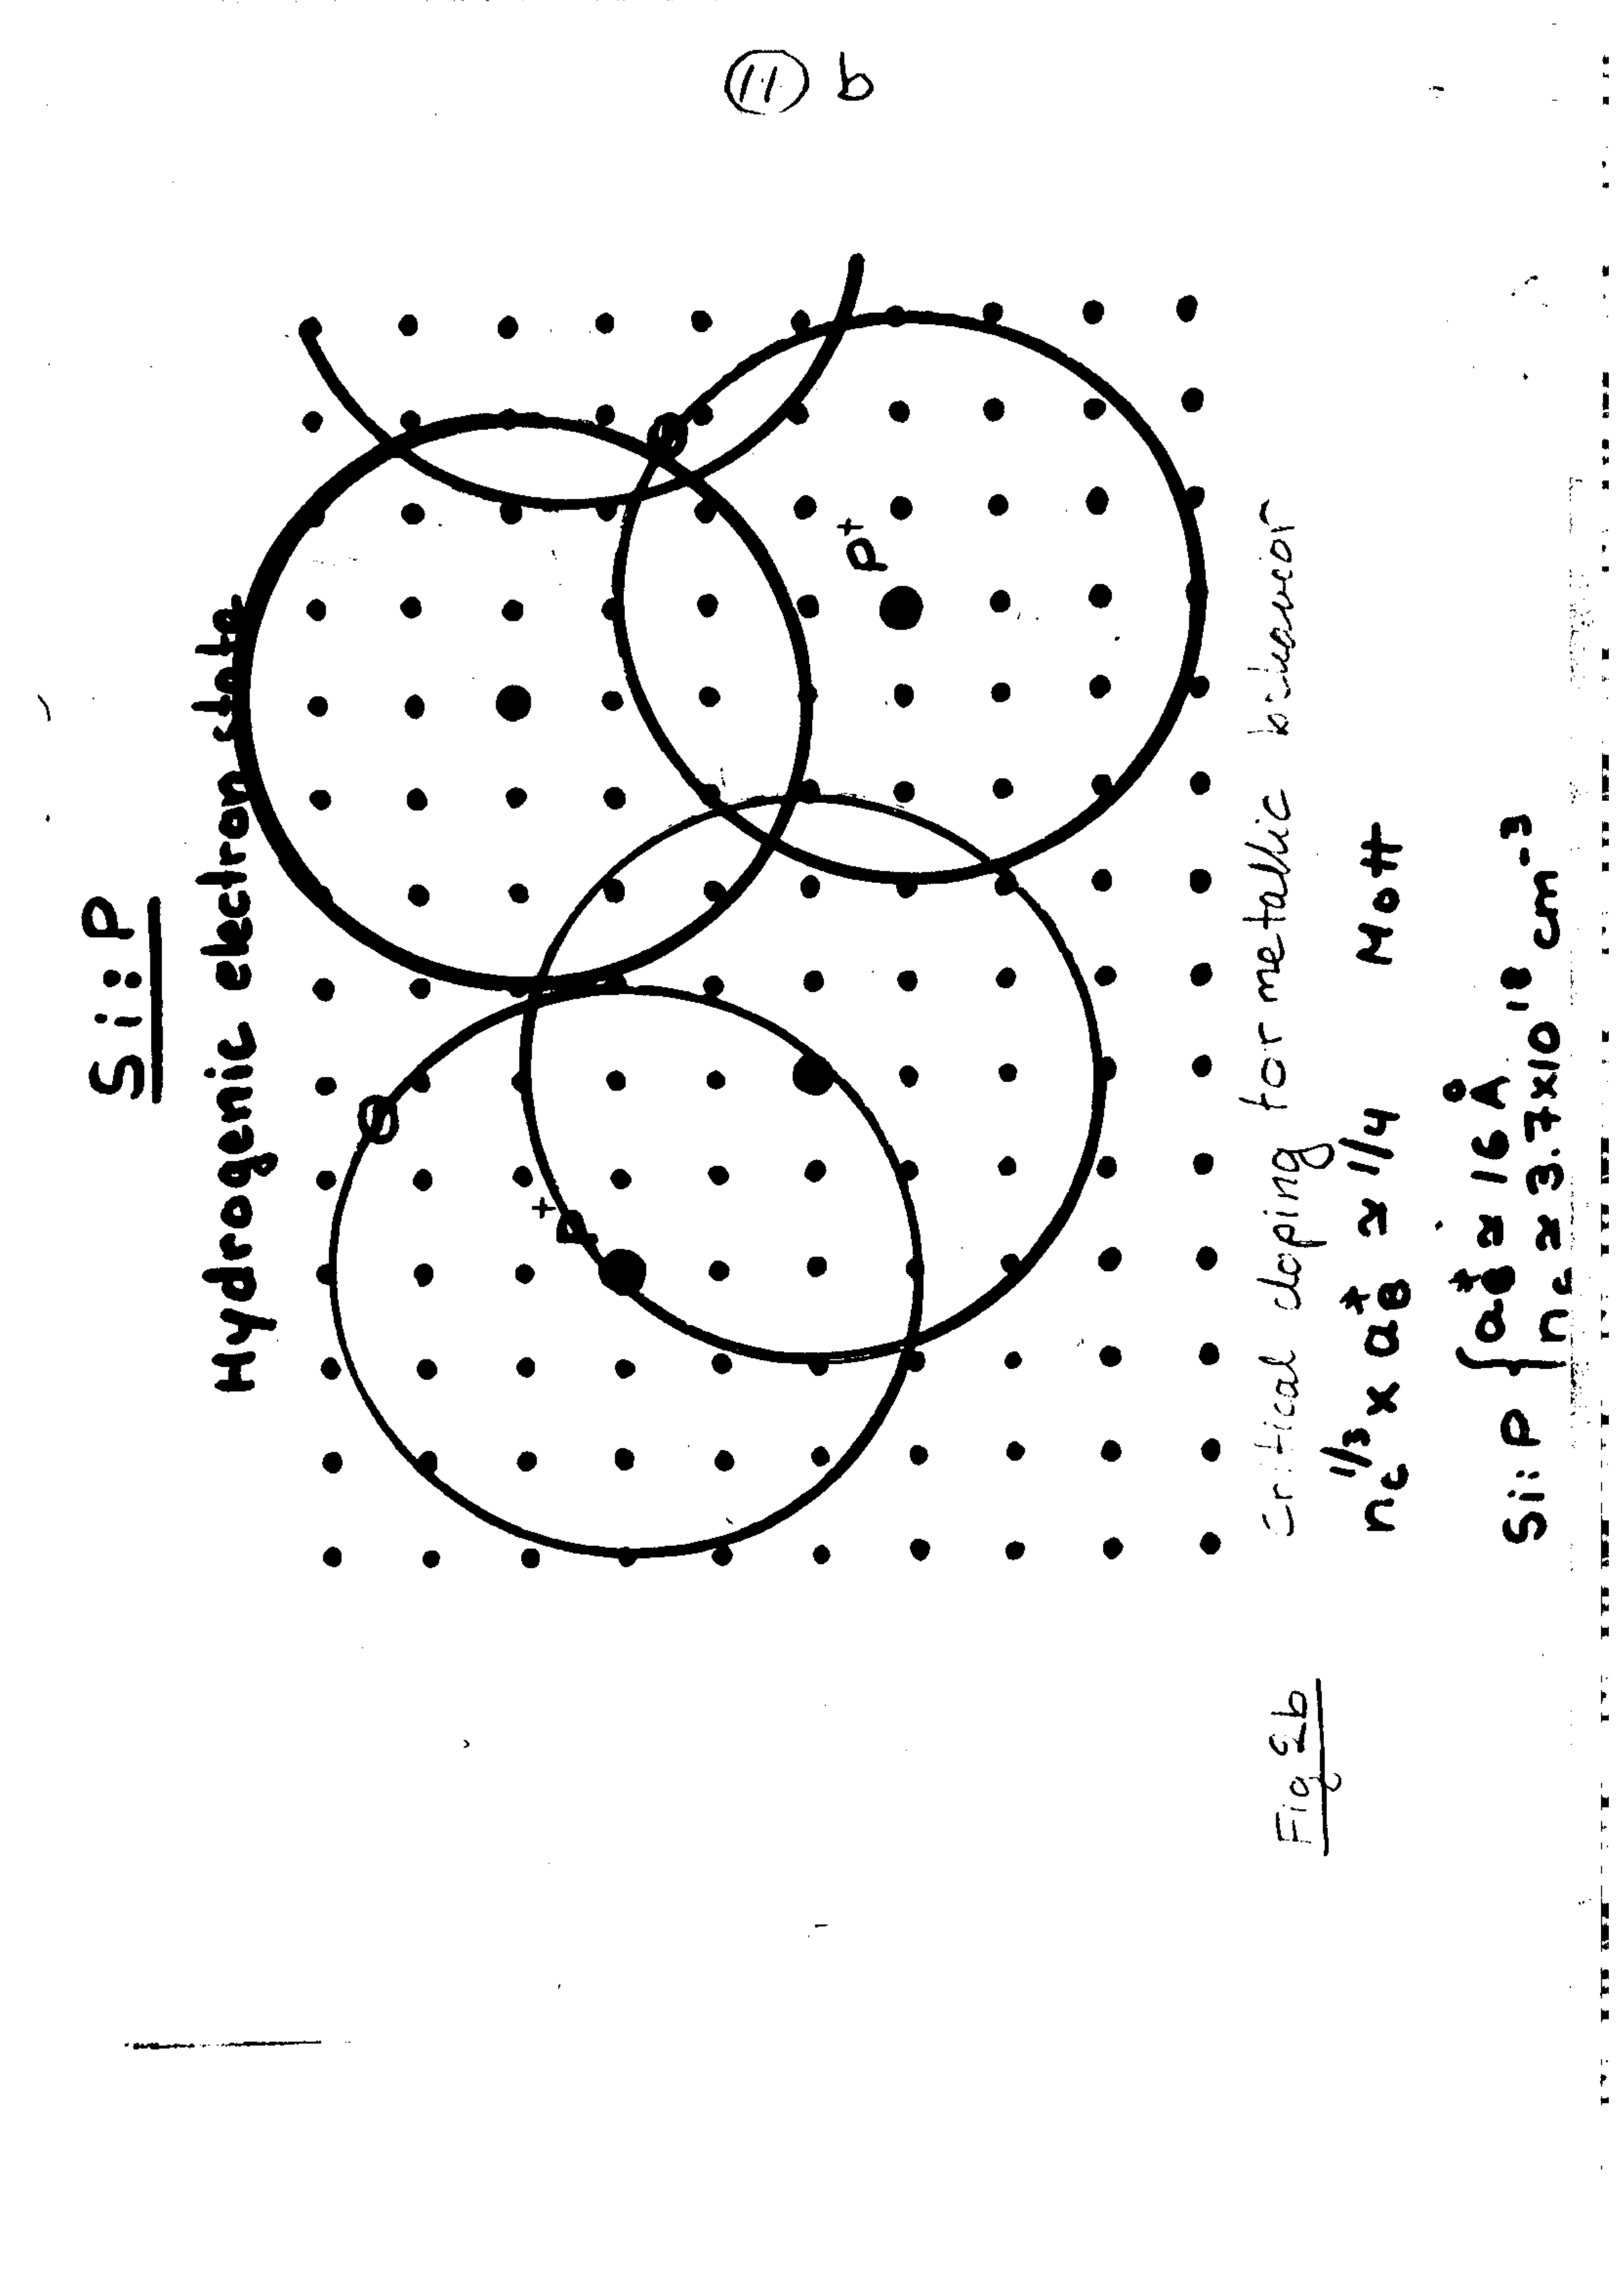 11 b
Si:P
Hydrogenic electron state
P⁺
P⁺
Critical doping for metallic behavior
n_c^{1/3} × a_B^* ≈ 1/4 Mott
Si:P { a_B^* ≈ 16 Å
n_c ≈ 3.7×10^{18} cm^{-3}
Fig 2b